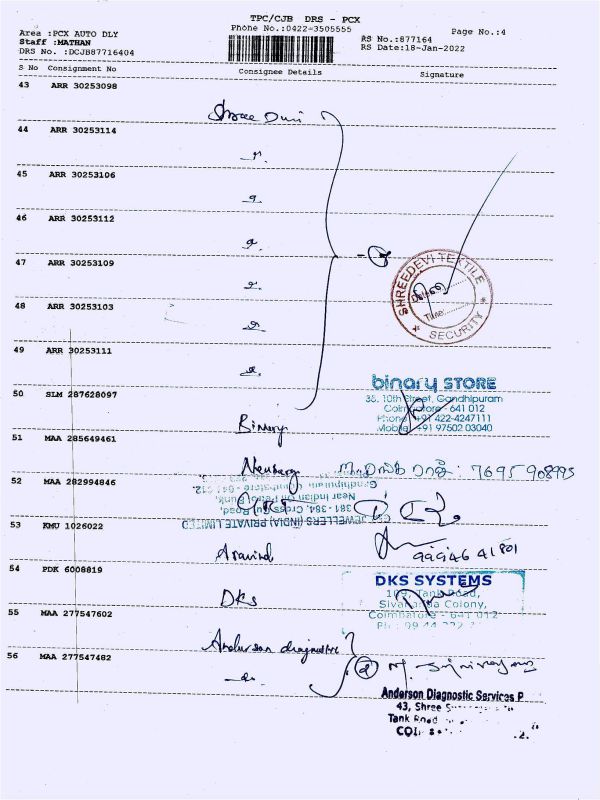 TPC/CJB DRS - PCX
Area :PCX AUTO DLY
Phone No.:0422-3505555
Page No.:4
Staff :MATHAN
RS No.:877164
DRS No. :DCJB87716404
RS Date:18-Jan-2022
S No Consignment No Consignee Details Signature
43 ARR 30253098
Shree Devi
44 ARR 30253114
45 ARR 30253106
46 ARR 30253112
47 ARR 30253109
SHREEDEVI TEXTILE
Date:
Time:
SECURITY
48 ARR 30253103
49 ARR 30253111
binary STORE
50 SLM 287628097
38, 10th Street, Gandhipuram
Coimbatore - 641 012
Phone +91 422-4247111
Mobile +91 97502 03040
Binary
51 MAA 285649461
Neuberg
7695 908995
52 MAA 282994846
Gandhipuram, Coimbatore - 641 012.
Near Indian Oil Petrol Bunk,
381 - 384, Cross Cut Road,
JEWELLERS (INDIA) PRIVATE LIMITED
53 KMU 1026022
Aravind
99946 41801
54 PDK 6008819
DKS SYSTEMS
109, Tank Road,
Sivananda Colony,
Coimbatore - 641 012
DKS
55 MAA 277547602
Anderson diagnostic
56 MAA 277547482
Anderson Diagnostic Services P
43, Shree
Tank Road